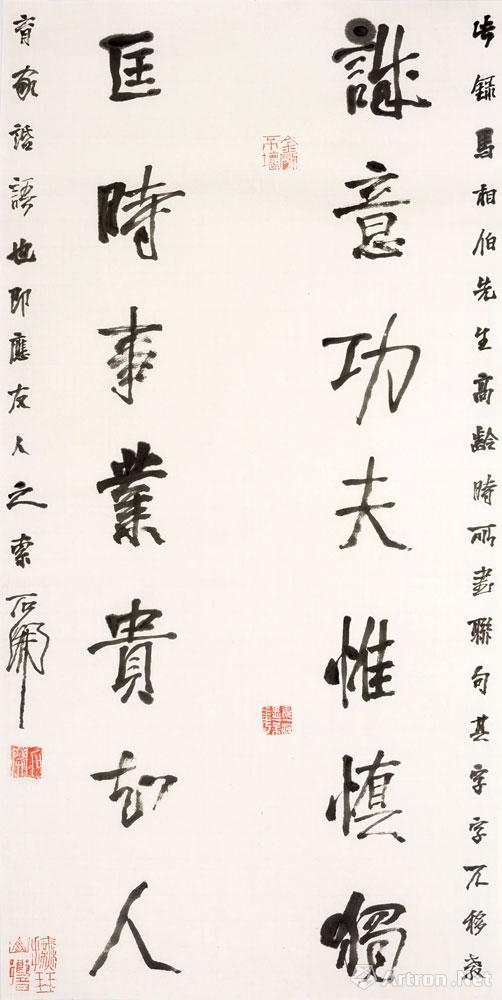 錄馬相伯先生高齡時所書聯句其字字不移教
誠意功夫惟慎獨
匡時事業貴知人
育家語也即應友人之索 石開
金剛不壞
Artron.Net